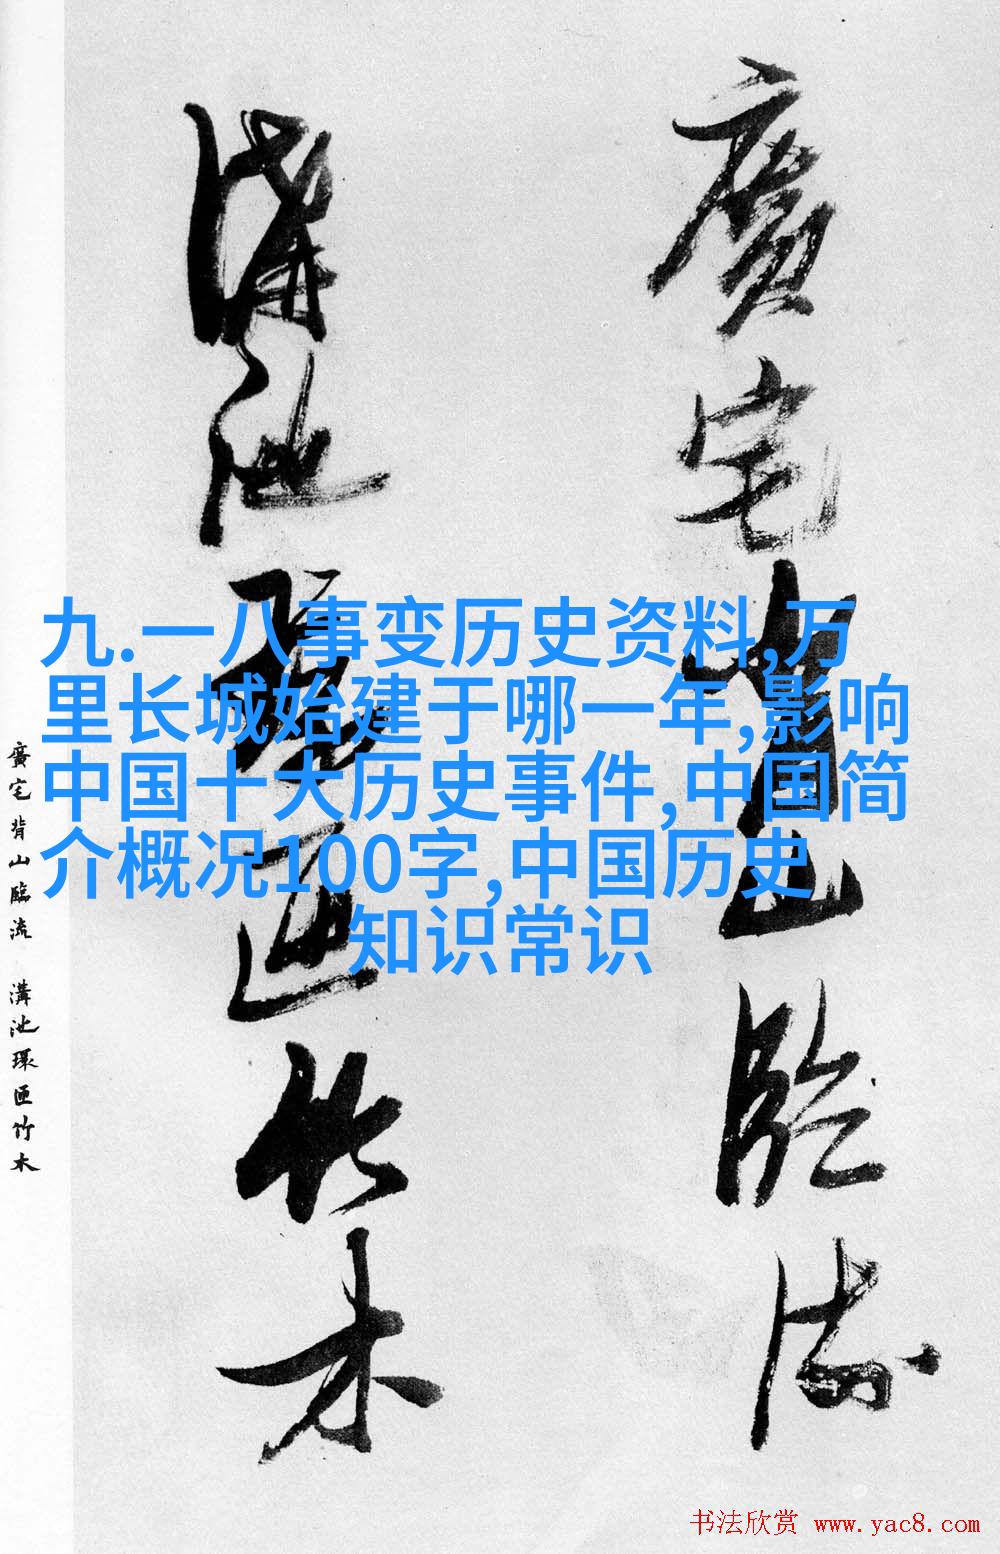 廣宅背山臨流
溝池環匝竹木
九.一八事变历史资料,万
里长城始建于哪一年,影响
中国十大历史事件,中国简
介概况100字,中国历史
知识常识
廣宅背山臨流 溝池環匝竹木
书法欣赏 www.yac8.com